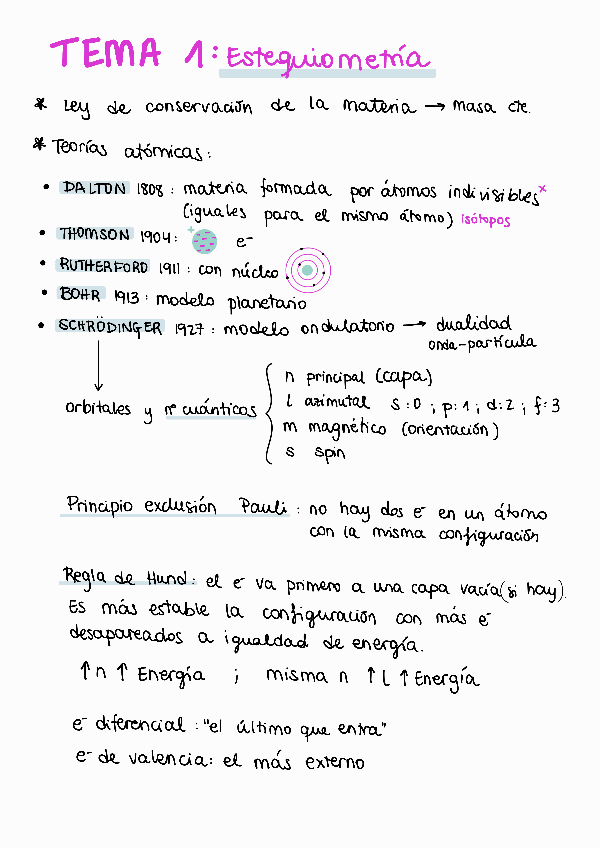 TEMA 1: Estequiometría
* Ley de conservación de la materia → masa cte.
* Teorías atómicas:
• DALTON 1808: materia formada por átomos indivisibles x
(iguales para el mismo átomo) isótopos
• THOMSON 1904: e⁻
• RUTHERFORD 1911: con núcleo
• BOHR 1913: modelo planetario
• SCHRÖDINGER 1927: modelo ondulatorio → dualidad
onda-partícula
n principal (capa)
orbitales y nº cuánticos
l azimutal s:0; p:1; d:2; f:3
m magnético (orientación)
s spin
Principio exclusión Pauli: no hay dos e⁻ en un átomo
con la misma configuración
Regla de Hund: el e⁻ va primero a una capa vacía (si hay).
Es más estable la configuración con más e⁻
desapareados a igualdad de energía.
↑n ↑ Energía ; misma n ↑ l ↑ Energía
e⁻ diferencial: "el último que entra"
e⁻ de valencia: el más externo